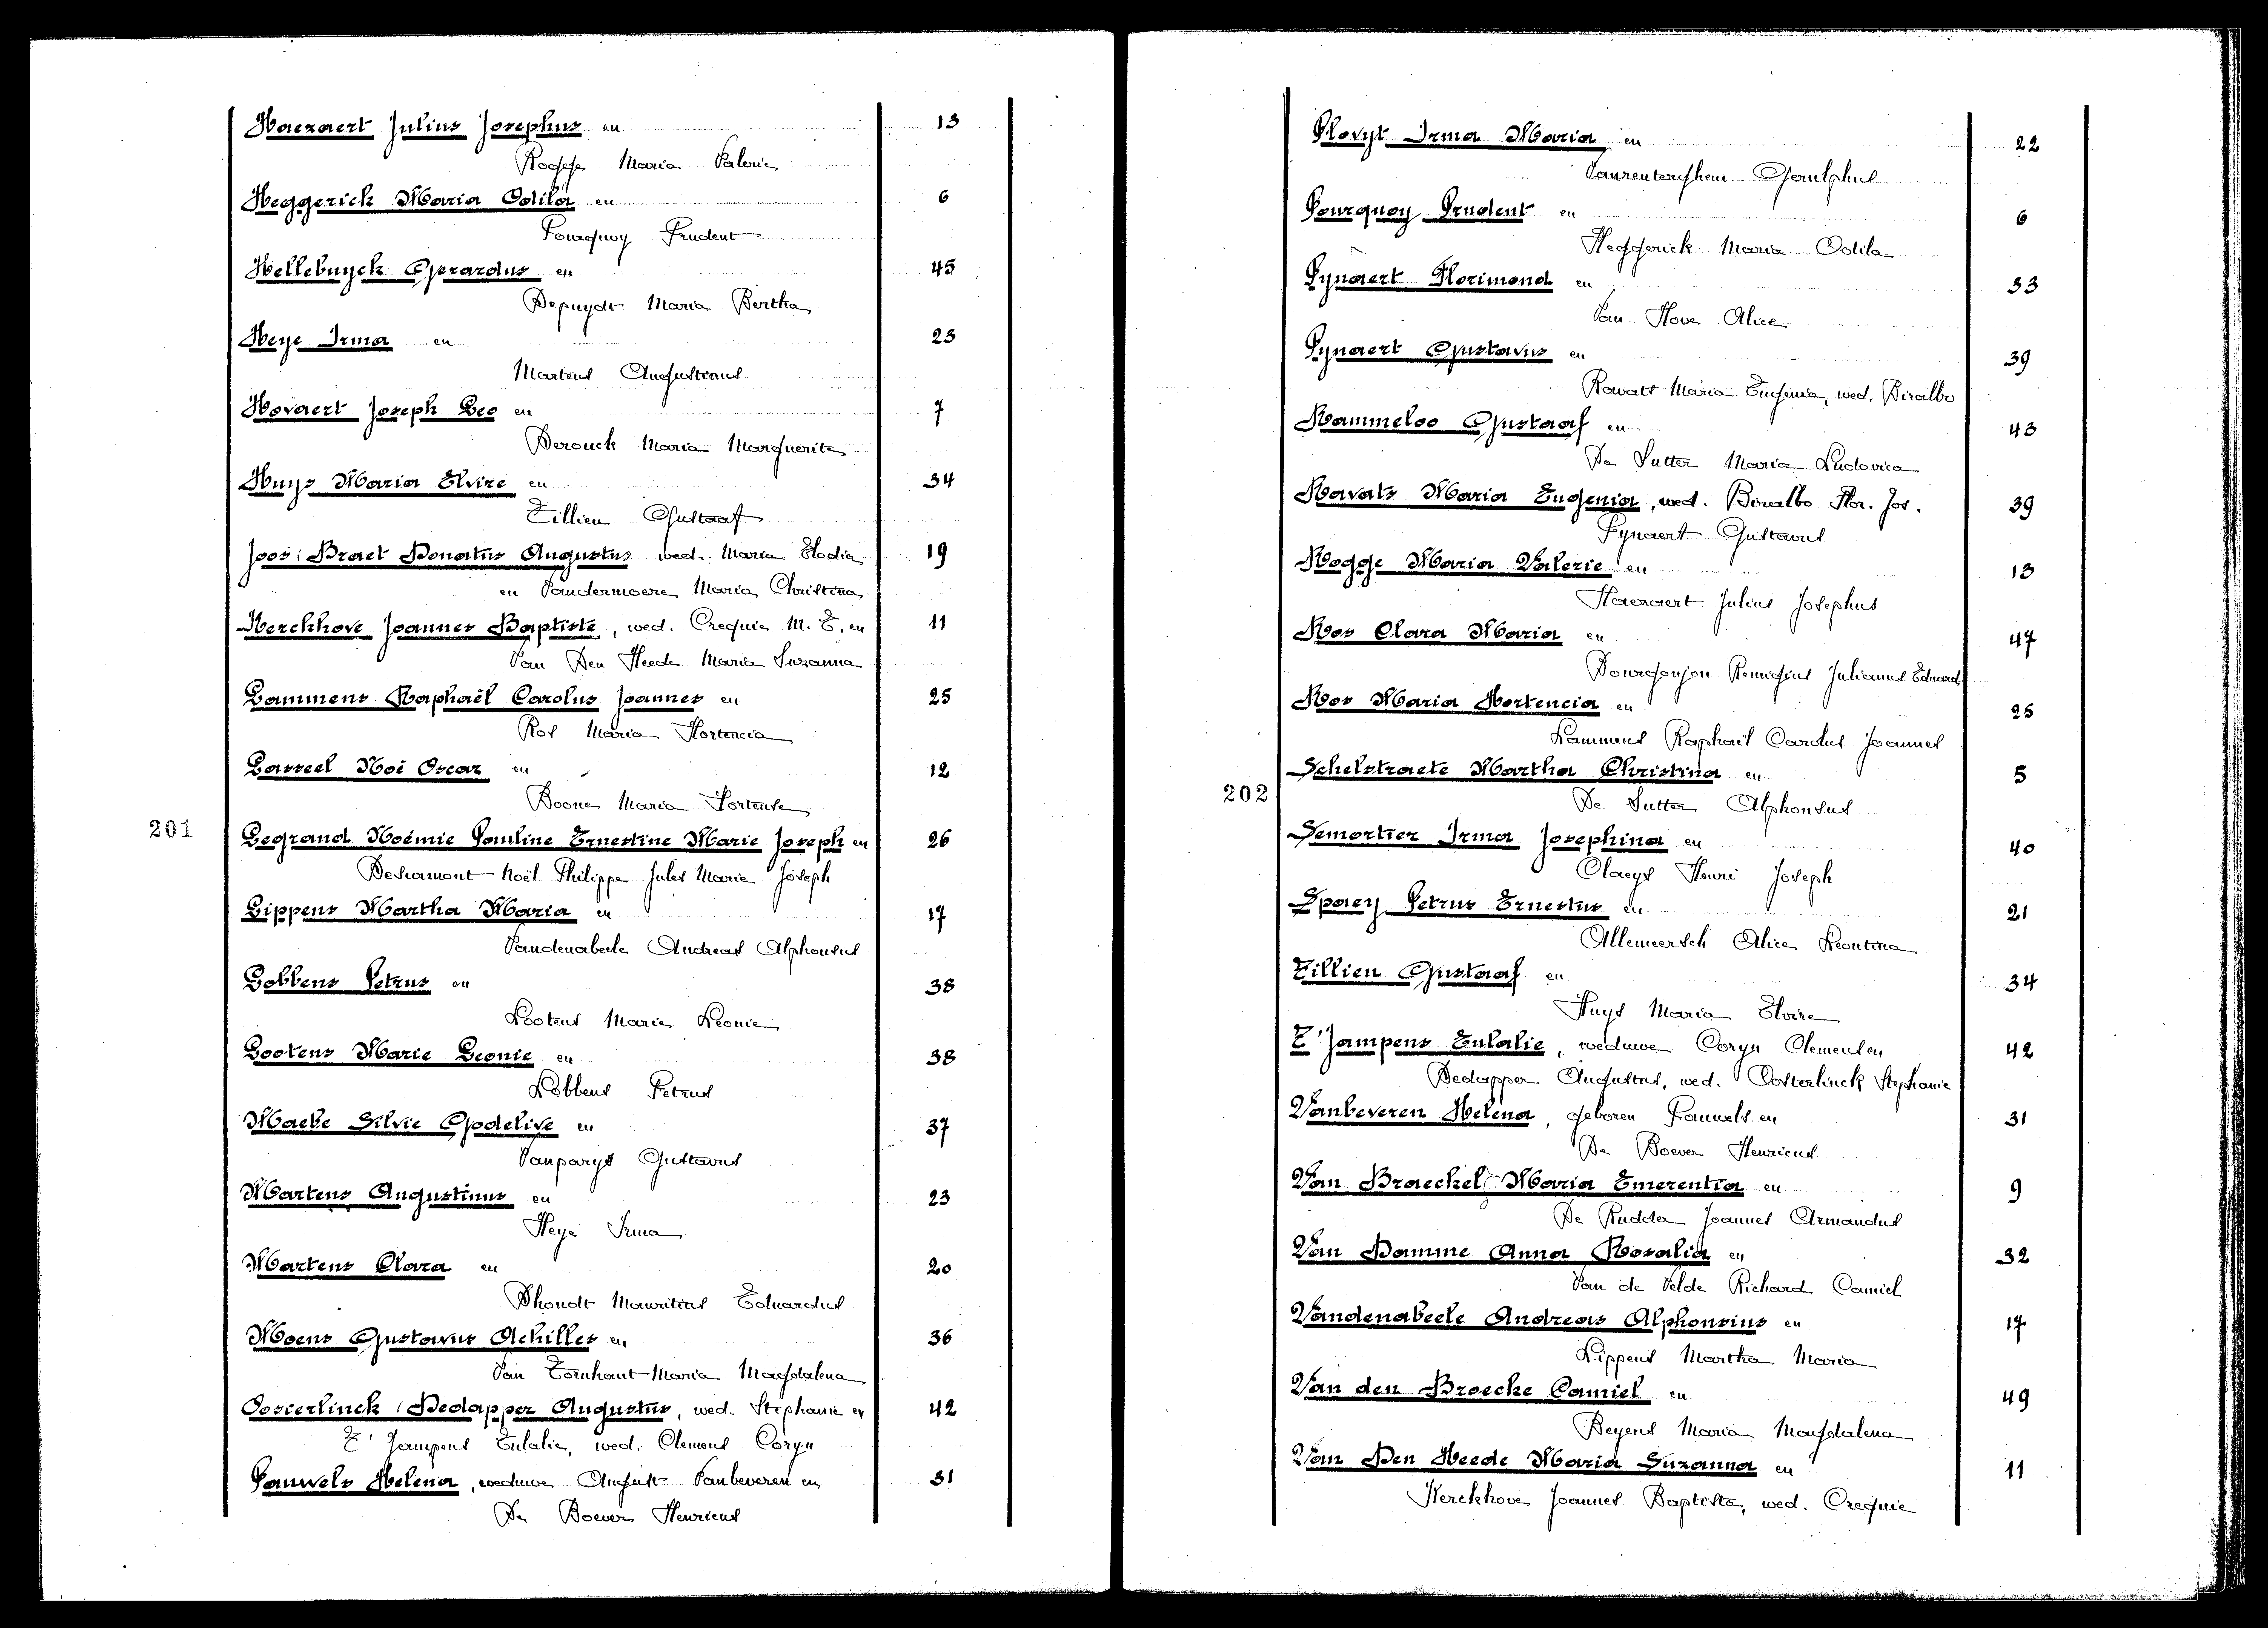 Haezaert Julius Josephus en 13
Rogge Maria Valerie
Heggerick Maria Odila en 6
Pourquoy Prudent
Hellebuyck Gerardus en 45
Depuydt Maria Bertha
Heye Irma en 23
Martens Augustinus
Hovaert Joseph Leo en 7
Derouck Maria Marguerite
Huys Maria Elvire en 34
Tillieu Gustaaf
Joos: Braet Donatus Augustus wed. Maria Elodia 19
en Vandermoere Maria Christina
Kerckhove Joannes Baptiste, wed. Crequie M. E. en 11
Van Den Heede Maria Suzanna
Lammens Raphaël Carolus Joannes en 25
Ros Maria Hortencia
Lasseel Noë Oscar en 12
Boone Maria Hortense
201
Legrand Noémie Pauline Ernestine Marie Joseph en 26
Desurmont Noël Philippe Jules Marie Joseph
Lippens Martha Maria en 17
Vandenabeele Andreas Alphonsus
Lobbens Petrus en 38
Lootens Marie Leonie
Lootens Marie Leonie en 38
Lobbens Petrus
Maebe Silvie Godelive en 37
Vanparys Gustavus
Martens Augustinus en 23
Heye Irma
Martens Clara en 20
Dhondt Mauritius Eduardus
Moens Gustavus Achilles en 36
Van Tornhaut Maria Magdalena
Oosterlinck / Dedapper Augustus, wed. Stephanie en 42
T' Jampens Eulalie, wed. Clemens Coryn
Pauwels Helena, weduwe August Vanbeveren en 31
De Boever Henricus
Plovyt Irma Maria en 22
Vanrenterghem Gerulphus
Pourquoy Prudent en 6
Heggerick Maria Odila
Pynaert Florimond en 33
Van Hove Alice
Pynaert Gustavus en 39
Ravats Maria Eugenia, wed. Biralbo
Rammeloo Gustaaf en 43
De Sutter Maria Ludovica
Ravats Maria Eugenia, wed. Biralbo Flor. Jos. 39
Pynaert Gustavus
Rogge Maria Valerie en 13
Haezaert Julius Josephus
Ros Clara Maria en 47
Bourgonjon Remigius Julianus Eduard
Ros Maria Hortencia en 25
Lammens Raphaël Carolus Joannes
Schelstraete Martha Christina en 5
202
De Sutter Alphonsus
Semortier Irma Josephina en 40
Claeys Henri Joseph
Spaey Petrus Ernestus en 21
Allemeersch Alice Leontina
Tillieu Gustaaf en 34
Huys Maria Elvire
T'Jampens Eulalie, weduwe Coryn Clemens en 42
Dedapper Augustus, wed. Oosterlinck Stephanie
Vanbeveren Helena, geboren Pauwels en 31
De Boever Henricus
Van Braeckel Maria Emerentia en 9
De Rudder Joannes Armandus
Van Damme Anna Rosalia en 32
Van de Velde Richard Camiel
Vandenabeele Andreas Alphonsius en 17
Lippens Martha Maria
Van den Broecke Camiel en 49
Beyens Maria Magdalena
Van Den Heede Maria Suzanna en 11
Kerckhove Joannes Baptista, wed. Crequie